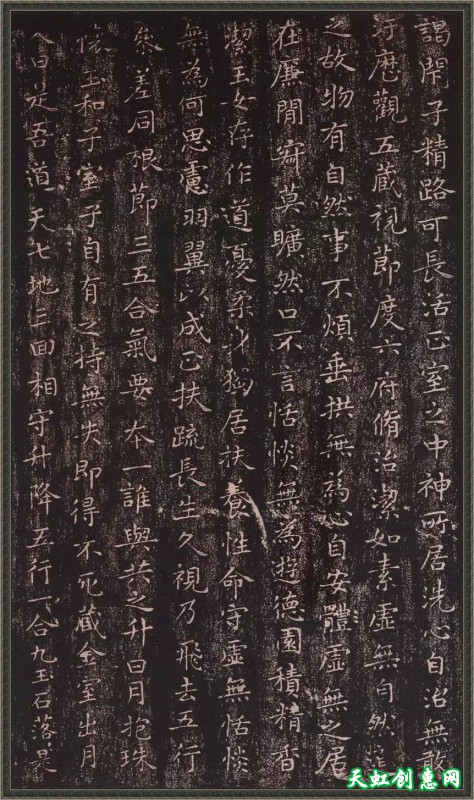 謁閇子精路可長活正室之中神所居洗心自治無敢
汙歷觀五藏視節度六府脩治潔如素虛無自然道
之故物有自然事不煩垂拱無為心自安體虛無之居
在廉間寂莫曠然口不言恬惔無為遊德園積精香
潔玉女存作道憂柔身獨居扶養性命守虛無恬惔
無為何思慮羽翼以成正扶疏長生久視乃飛去五行
參差同根節三五合氣要本一誰與共之升日月抱珠
懷玉和子室子自有之持無失即得不死藏金室出月
入日是吾道天七地三回相守升降五行一合九玉石落是
天虹创惠网